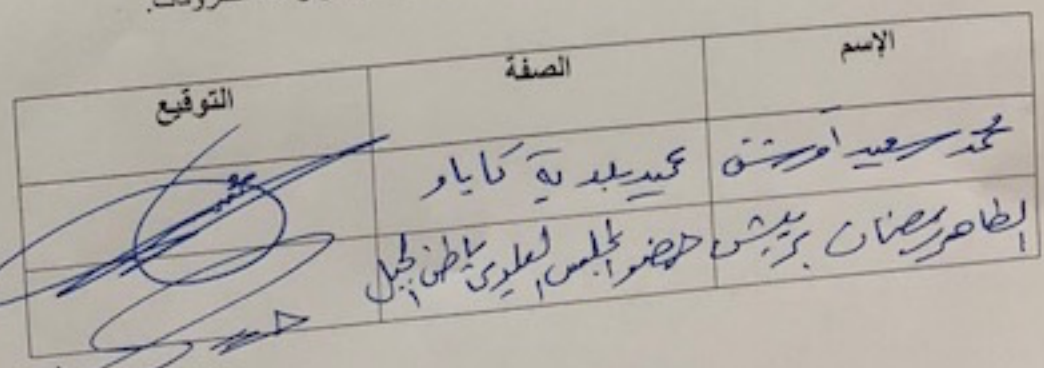 الإسم الصفة التوقيع
محمد سعيد عميد بلدية كاباو
الطاهر رمضان عضو المجلس البلدي باطن الجبل